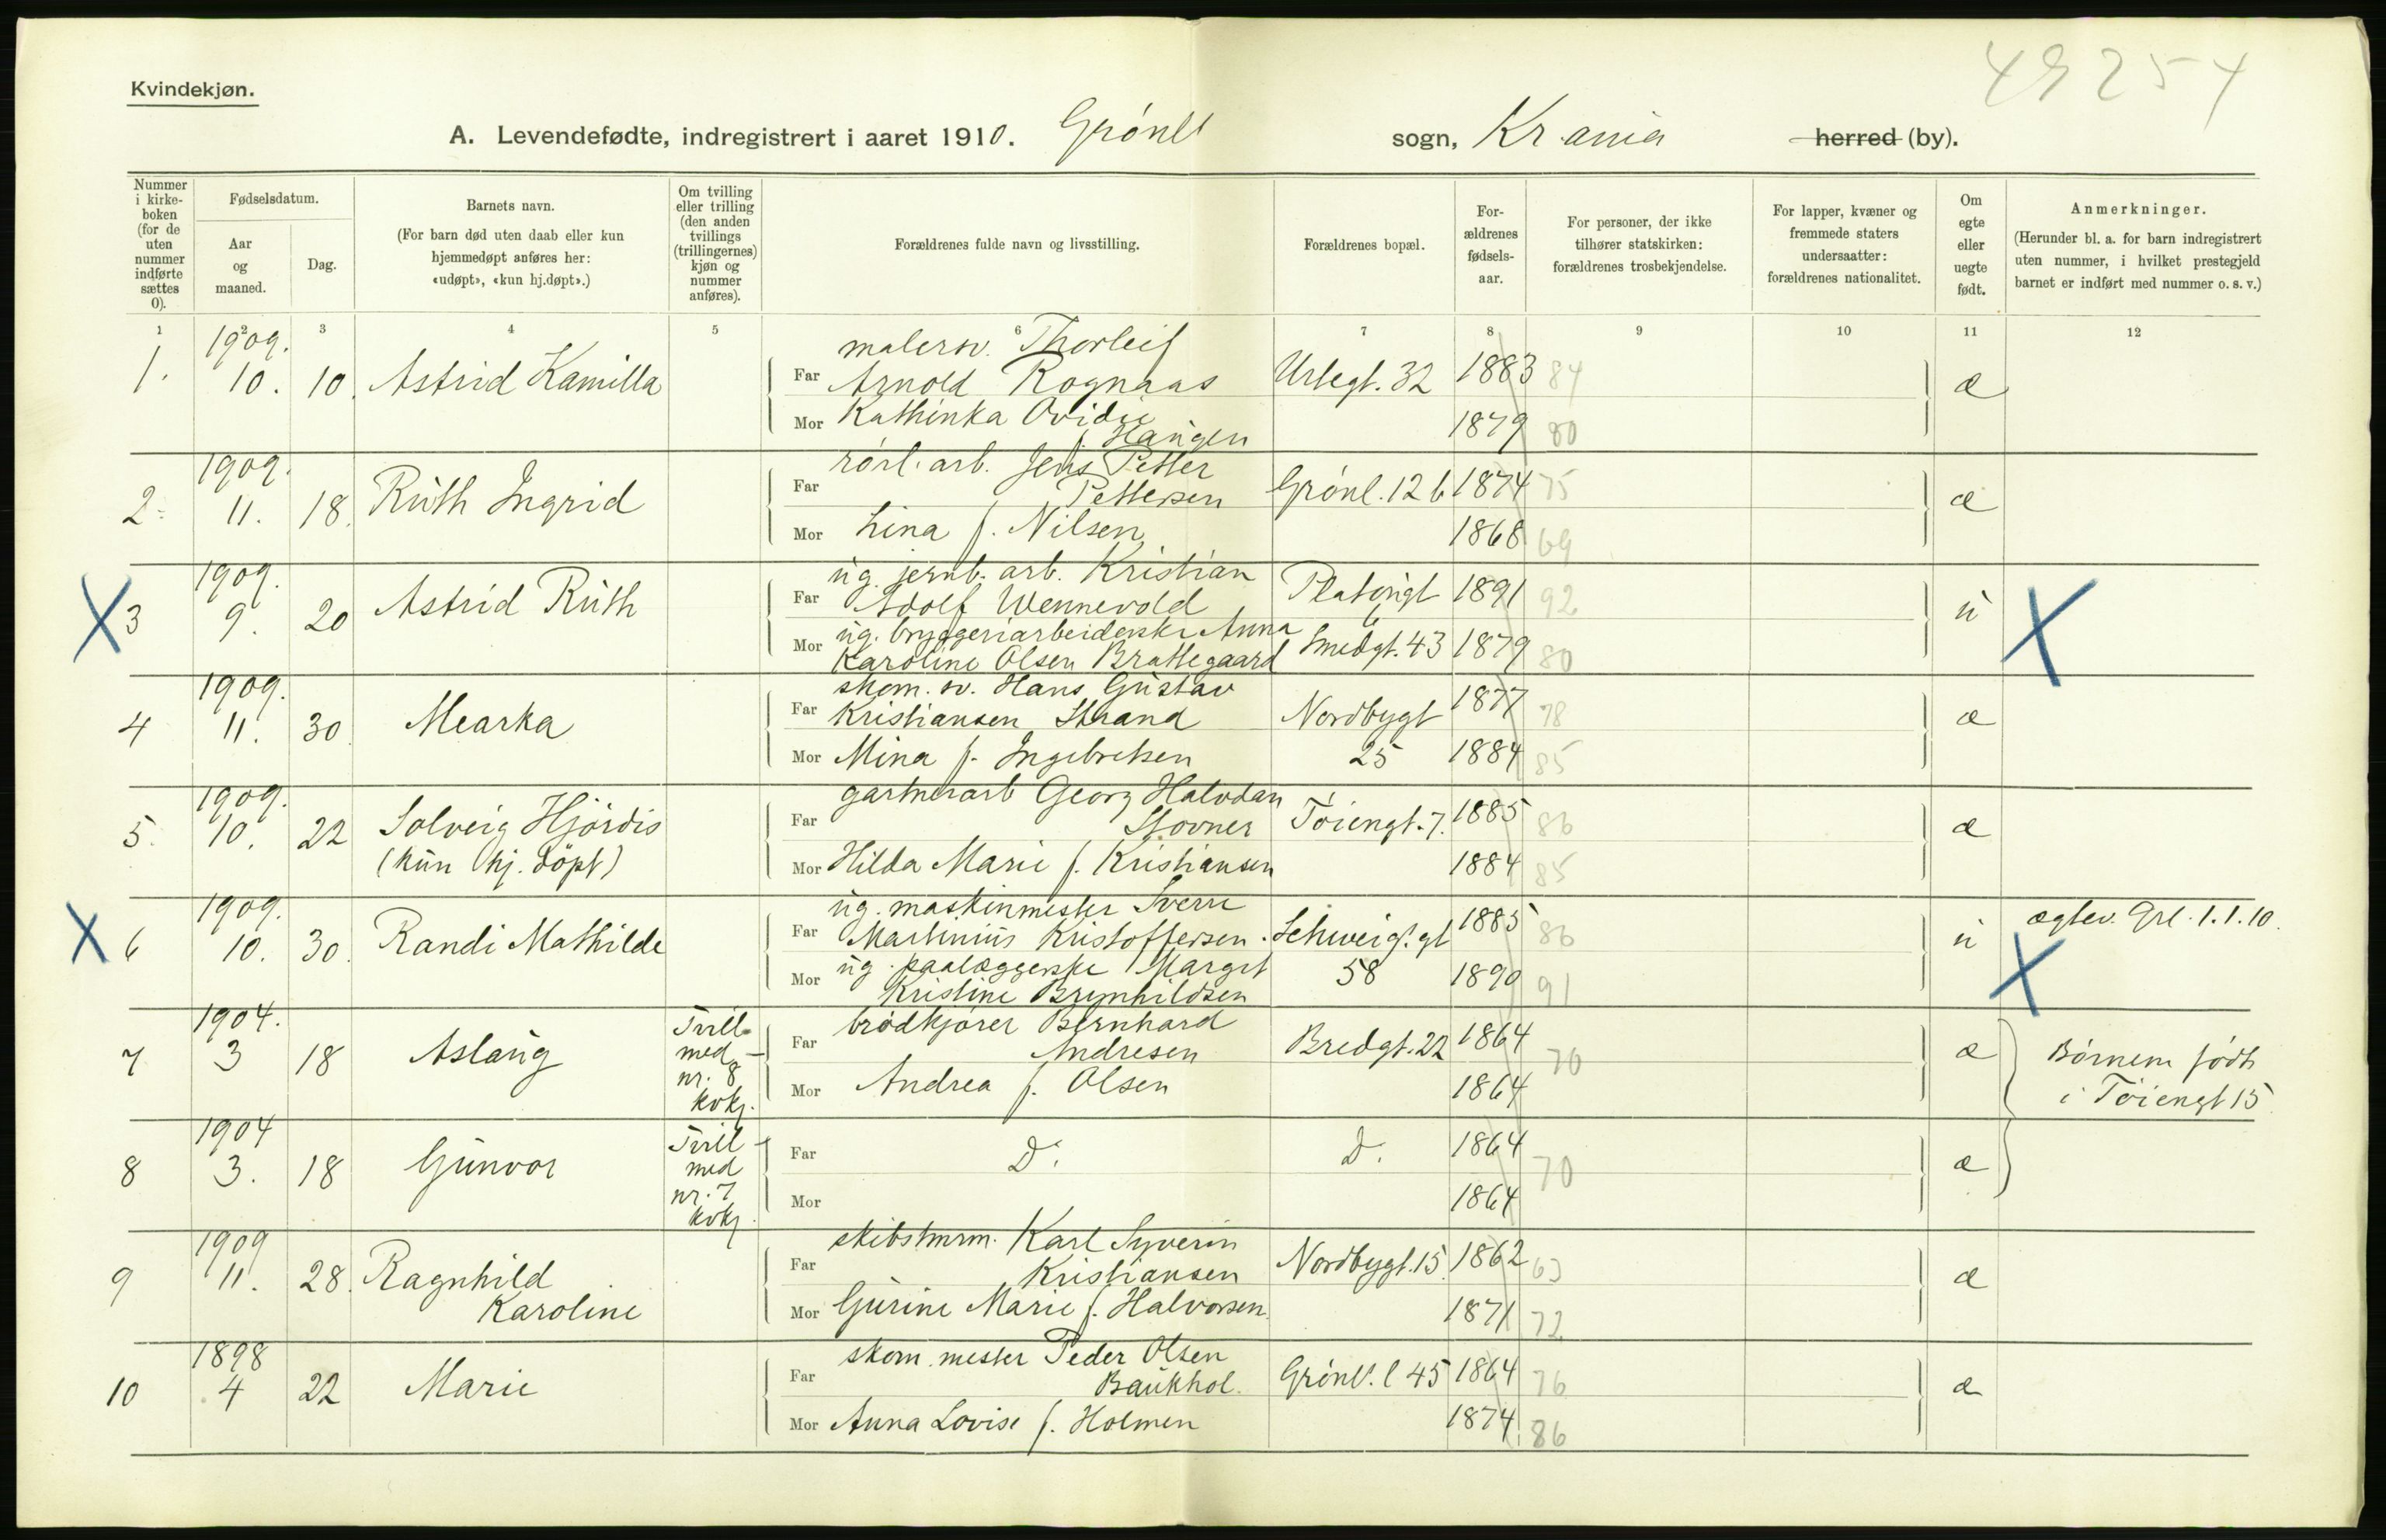 Kvindekjøn.
49254
A. Levendefødte, indregistrert i aaret 1910. Grønl. sogn, Kr.ania herred (by).
Nummer i kirke-boken (for de uten nummer indførte sættes 0).
Fødselsdatum.
Aar og maaned.
Dag.
Barnets navn.
(For barn død uten daab eller kun hjemmedøpt anføres her: «udøpt», «kun hj.døpt».)
Om tvilling eller trilling (den anden tvillings (trillingernes) kjøn og nummer anføres).
Forældrenes fulde navn og livsstilling.
Forældrenes bopæl.
For-ældrenes fødsels-aar.
For personer, der ikke tilhører statskirken: forældrenes trosbekjendelse.
For lapper, kvæner og fremmede staters undersaatter: forældrenes nationalitet.
Om egte eller uegte født.
Anmerkninger.
(Herunder bl. a. for barn indregistrert uten nummer, i hvilket prestegjeld barnet er indført med nummer o. s. v.)
1 2 3 4 5 6 7 8 9 10 11 12
1. 1909. 10. 10. Astrid Kamilla
malersv. Thorleif
Far Arnold Rognaas Urtegt. 32 1883 84 æ
Mor Kathinka Ovidie f. Haugen 1879 80
2. 1909. 11. 18. Ruth Ingrid
rörl. arb. Jens Petter
Far Pettersen Grønl. 12 b 1874 75 æ
Mor Lina f. Nilsen 1868 69
X 3 1909. 9. 20 Astrid Ruth
ug. jernb. arb. Kristian
Far Adolf Wennevold Platougt 6 1891 92 u X
ug. bryggeriarbeiderske Anna
Mor Karoline Olsen Brattegaard Smedgt. 43 1879 80
4 1909. 11. 30. Mearka
skom. sv. Hans Gustav
Far Kristiansen Strand Nordbygt 1877 78 æ
Mor Mina f. Ingebretsen 25 1884 85
5. 1909. 10. 22 Solveig Hjördis
(kun hj. döpt)
gartnerarb Georg Halvdan
Far Stovner Töiengt. 7. 1885 86 æ
Mor Hilda Marie f. Kristiansen 1884 85
X 6 1909. 10. 30. Randi Mathilde
ug. maskinmester Sverre
Far Martinius Kristoffersen. Schweig. gt 1885 86 u ægtev. Grl. 1.1.10.
X
Mor ug. paalæggerske Margit 58 1890 91
Kristine Brynhildsen
7 1904. 3 18 Aslaug
Tvill. med nr. 8 kvkj.
brödkjører Bernhard
Far Andresen Bredgt. 22 1864 70 æ Børnene födt
Mor Andrea f. Olsen 1864 i Töiengt 15
8 1904 3. 18 Gunvor
Tvill med nr. 7 kvkj.
Far D. D. 1864 70 æ
Mor 1864
9 1909 11. 28. Ragnhild
Karoline
skibstmrm. Karl Syverin
Far Kristiansen Nordbygt. 15. 1862 63 æ
Mor Gurine Marie f. Halvorsen 1871 72
10 1898 4 22 Marie
skom. mester Peder Olsen
Far Baukhol. Grønl. l 45 1864 76 æ
Mor Anna Lovise f. Holmen 1874 86